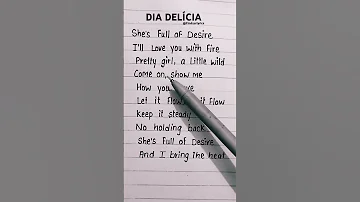 DIA DELÍCIA
She's Full of Desire
I'll Love you with Fire
Pretty girl, a little wild
Come on, show me
How you
Let it Flow, it Flow
Keep it steady
No holding back
She's Full of Desire
And I bring the heat